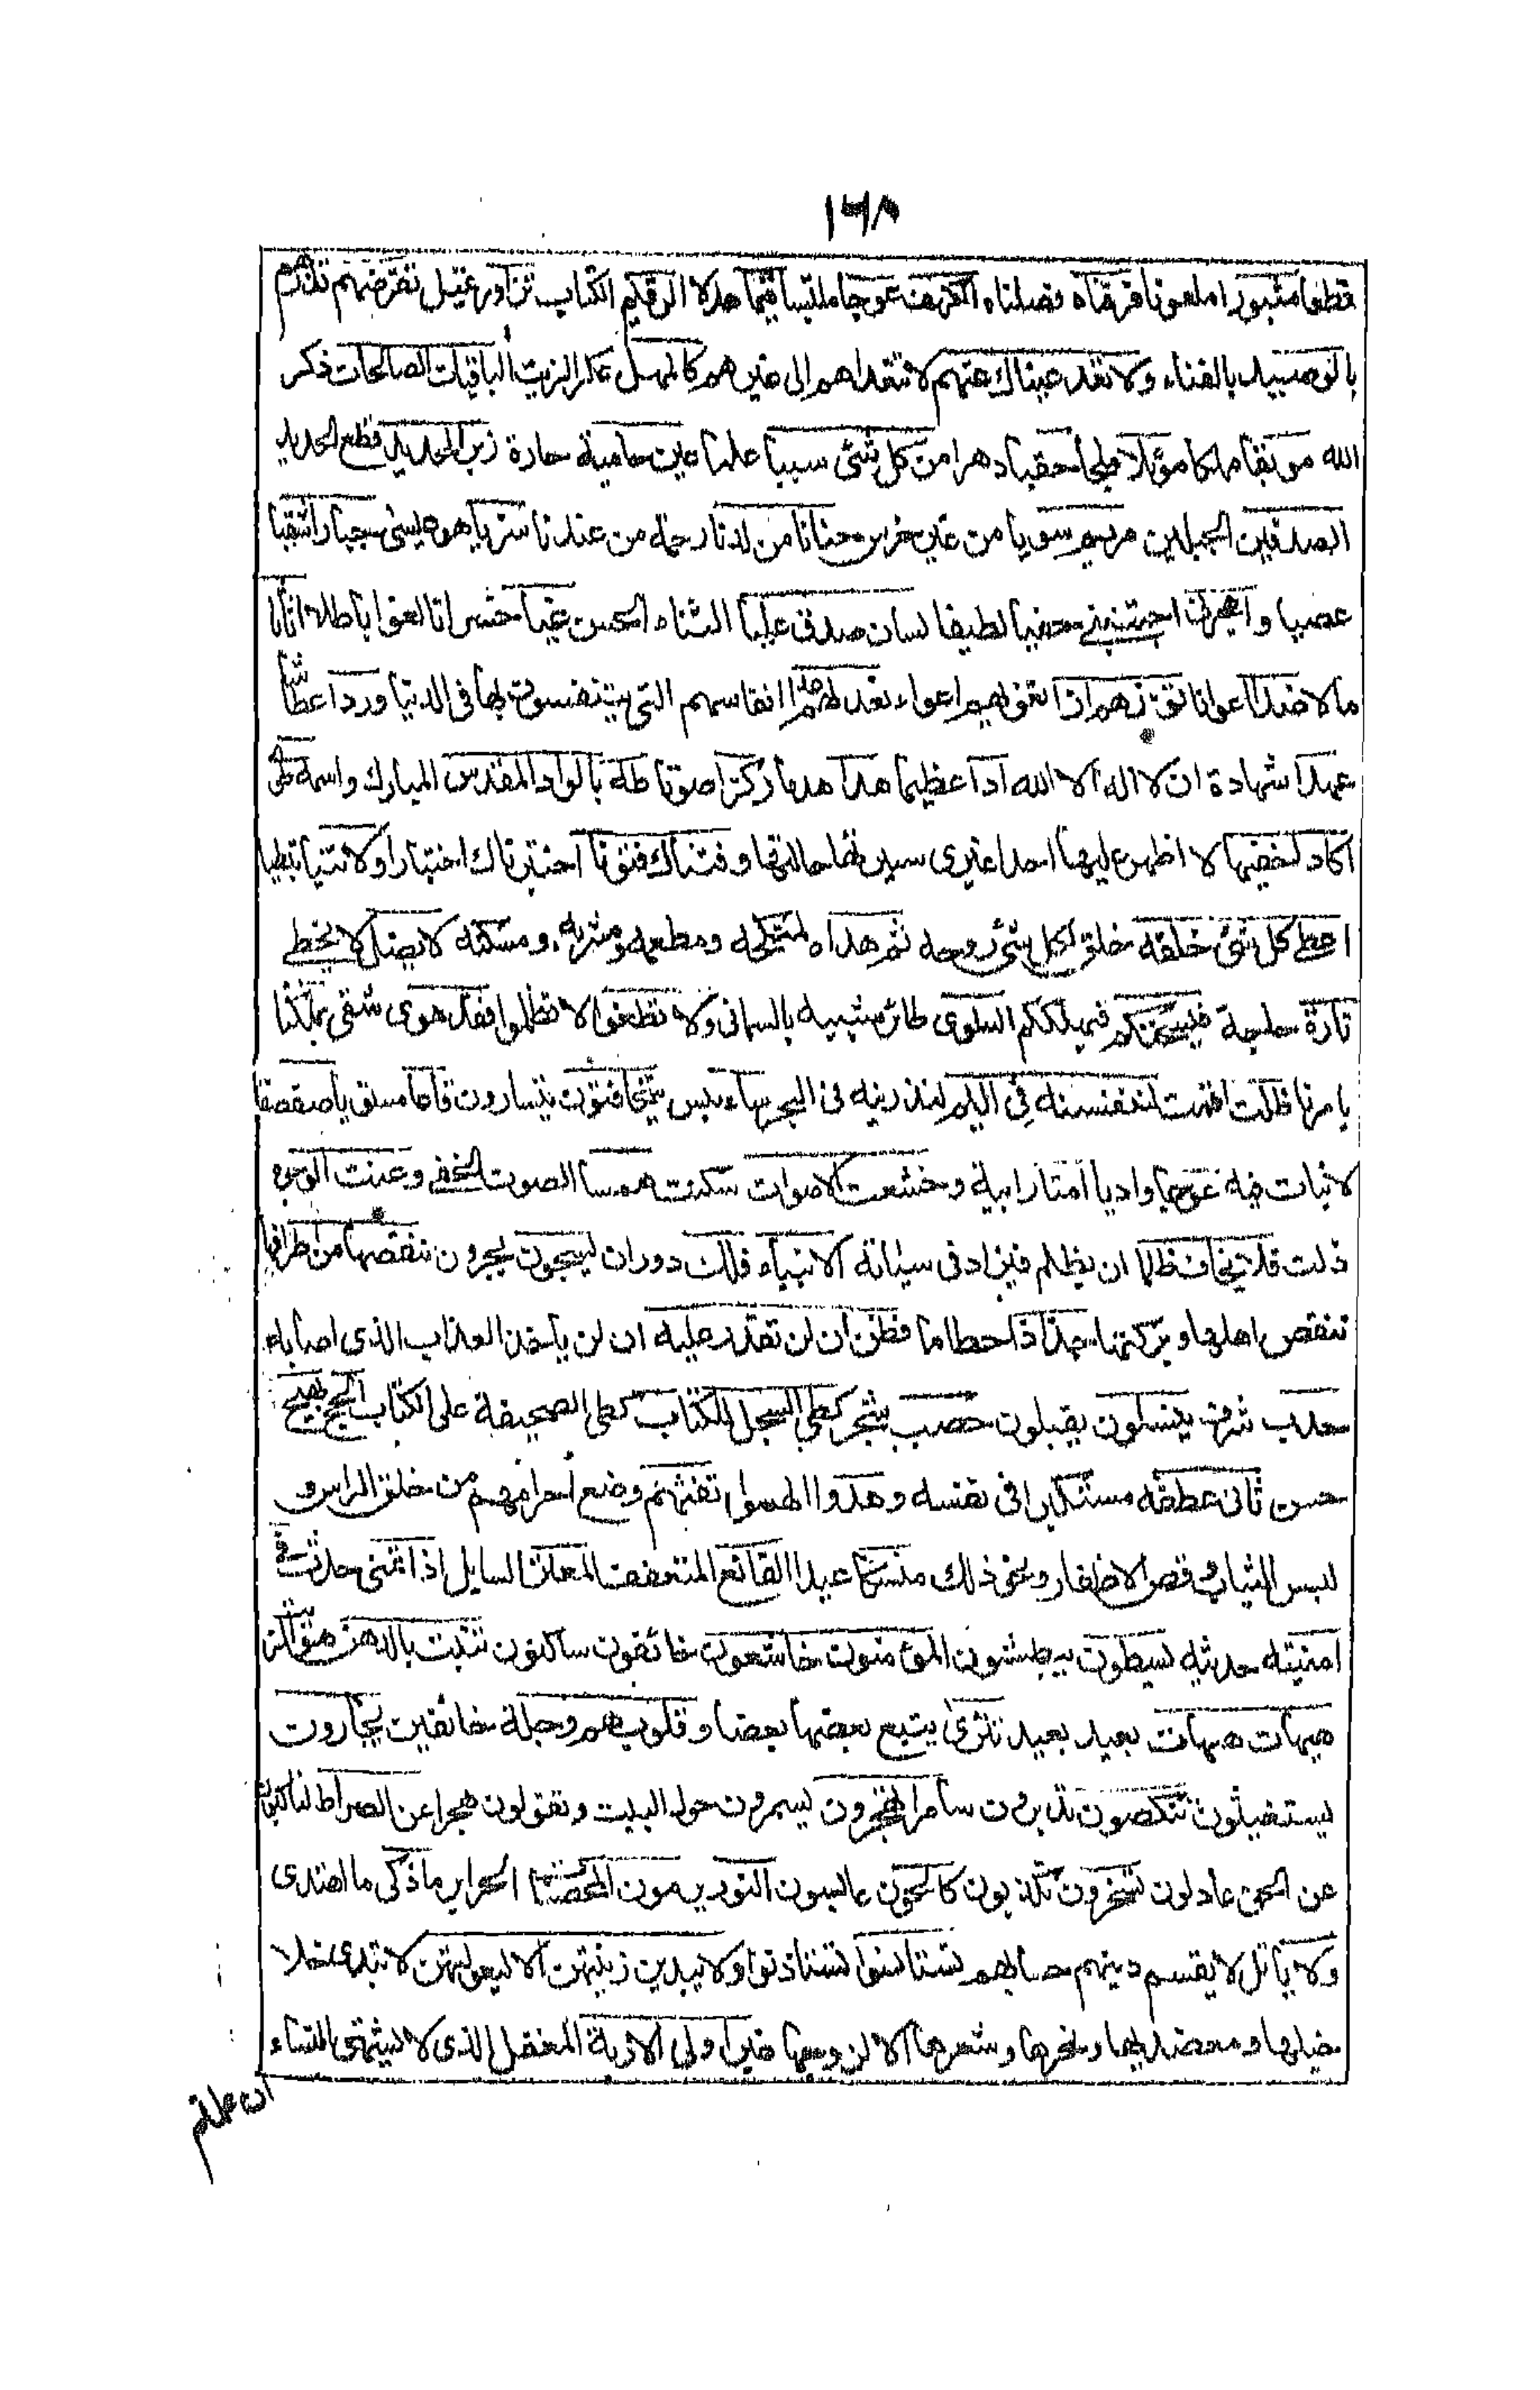 ١٦٨
قطعا مثبورا ملعونا فرقناه فصلناه الكهف عوجا ملتبسا قيما عدلا الرقيم الكتاب تزاور تميل تقرضهم تذرهم
بالوصيد بالفناء ولا تعد عيناك عنهم لا تتعداهم الى غيرهم كالمهل عكر الزيت الباقيات الصالحات ذكر
الله موبقا مهلكا موئلا ملجأ حقبا دهرا من كل شئ سببا علما عين حامية حارة زبر الحديد قطع الحديد
الصدفين الجبلين مريم سويا من غير خرس حنانا من لدنا رحمة من عندنا سريا هو عيسى جبارا شقيا
عصيا واهجرنى اجتنبنى حفيا لطيفا لسان صدق عليا الثناء الحسن غيا خسرانا لغوا باطلا اثاثا
مالا ضدا اعوانا تؤزهم ازا تغويهم اغواء نعد لهم عدا انفاسهم التى يتنفسون بها فى الدنيا وردا عطاشا
عهدا شهادة ان لا اله الا الله ادا عظيما هدا هدما ركزا صوتا طه بالواد المقدس المبارك واسمه طوى
اكاد اخفيها لا اظهر عليها احدا غيرى سيرتها حالتها وفتناك فتونا اختبرناك اختبارا ولا تنيا تبطيا
اعطى كل شئ خلقه خلق لكل شئ زوجه ثم هداه لمنكحه ومطعمه ومشربه ومسكنه لا يضل لا يخطى
تارة حاجة فيسحتكم فيهلككم السلوى طائر شبيه بالسمانى ولا تطغوا لا تظلموا فقد هوى شقى بملكنا
بامرنا ظلت اقمت لننسفنه فى اليم لنذرينه فى البحر ساء بئس يتخافتون يتسارون قاعا مستويا صفصفا
لا نبات فيه عوجا واديا امتا رابية وخشعت الاصوات سكنت همسا الصوت الخفى وعنت الوجوه
ذلت فلا يخاف ظلما ان يظلم فيزاد فى سيئاته الانبياء فلك دوران يسبحون يجرون ننقصها من اطرافها
ننقص اهلها وبركتها جذاذا حطاما فظن ان لن نقدر عليه ان لن ياخذ العذاب الذى اصابه
حدب شرف ينسلون يقبلون حصب شجر كطى السجل للكتاب كطى الصحيفة على الكتاب الحج بهيج
حسن ثانى عطفه مستكبرا فى نفسه وهدوا الهموا تفثهم وضع احرامهم من حلق الراس و
لبس الثياب وقص الاظفار ونحو ذلك منسكا عيدا القانع المتعفف المعتر السايل اذا تمنى حدث فى
امنيته حديثه يسطون يبطشون المؤمنون خاشعون خائفون ساكنون تنبت بالدهن هو الزيت
هيهات هيهات بعيد بعيد تترى يتبع بعضها بعضا وقلوبهم وجلة خائفين يجأرون
يستغيثون تنكصون تدبرون سامرا تهجرون يسمرون حول البيت وتقولون هجرا عن الصراط لناكبون
عن الحق عادلون تسخرون تكذبون كالحون عابسون النور يرمون المحصنات الحراير ما زكى ما اهتدى
ولا ياتل لا يقسم دينهم حسابهم تستانسوا تستاذنوا ولا يبدين زينتهن الا لبعولتهن لا تبدى خلا
خيلها ومعضديها ونحرها وشعرها الا لزوجها غير اولى الاربة المغفل الذى لا يشتهى النساء
ان علمتم